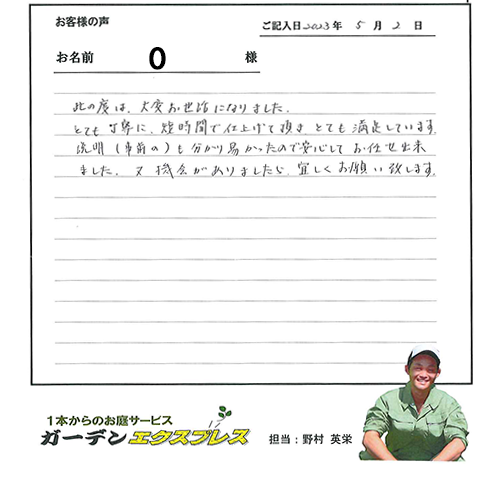 お客様の声
ご記入日2023年 5月 2日
お名前 O 様
此の度は、大変お世話になりました。
とても丁寧に、短時間で仕上げて頂き とても満足しています。
説明（事前の）も分かり易かったので安心して お任せ出来
ました。又 機会がありましたら、宜しくお願い致します。
1本からのお庭サービス
ガーデンエクスプレス
担当：野村 英栄